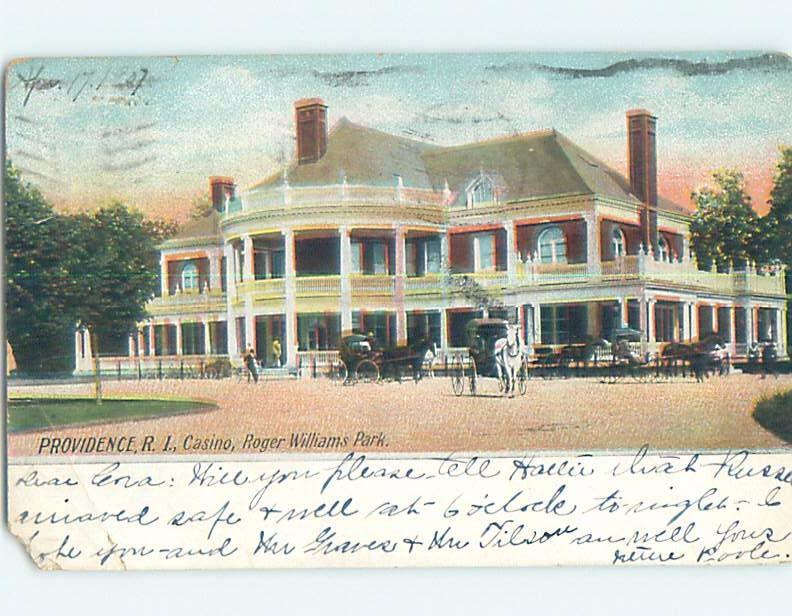 Apr. 17. 1907
PROVIDENCE, R. I., Casino, Roger Williams Park.
Dear Cora: Will you please tell Hattie that Russel
arrived safe & well at 6 o'clock to-night. I
hope you and Mr Graves & Mr Tilson are well Yours
Poole.